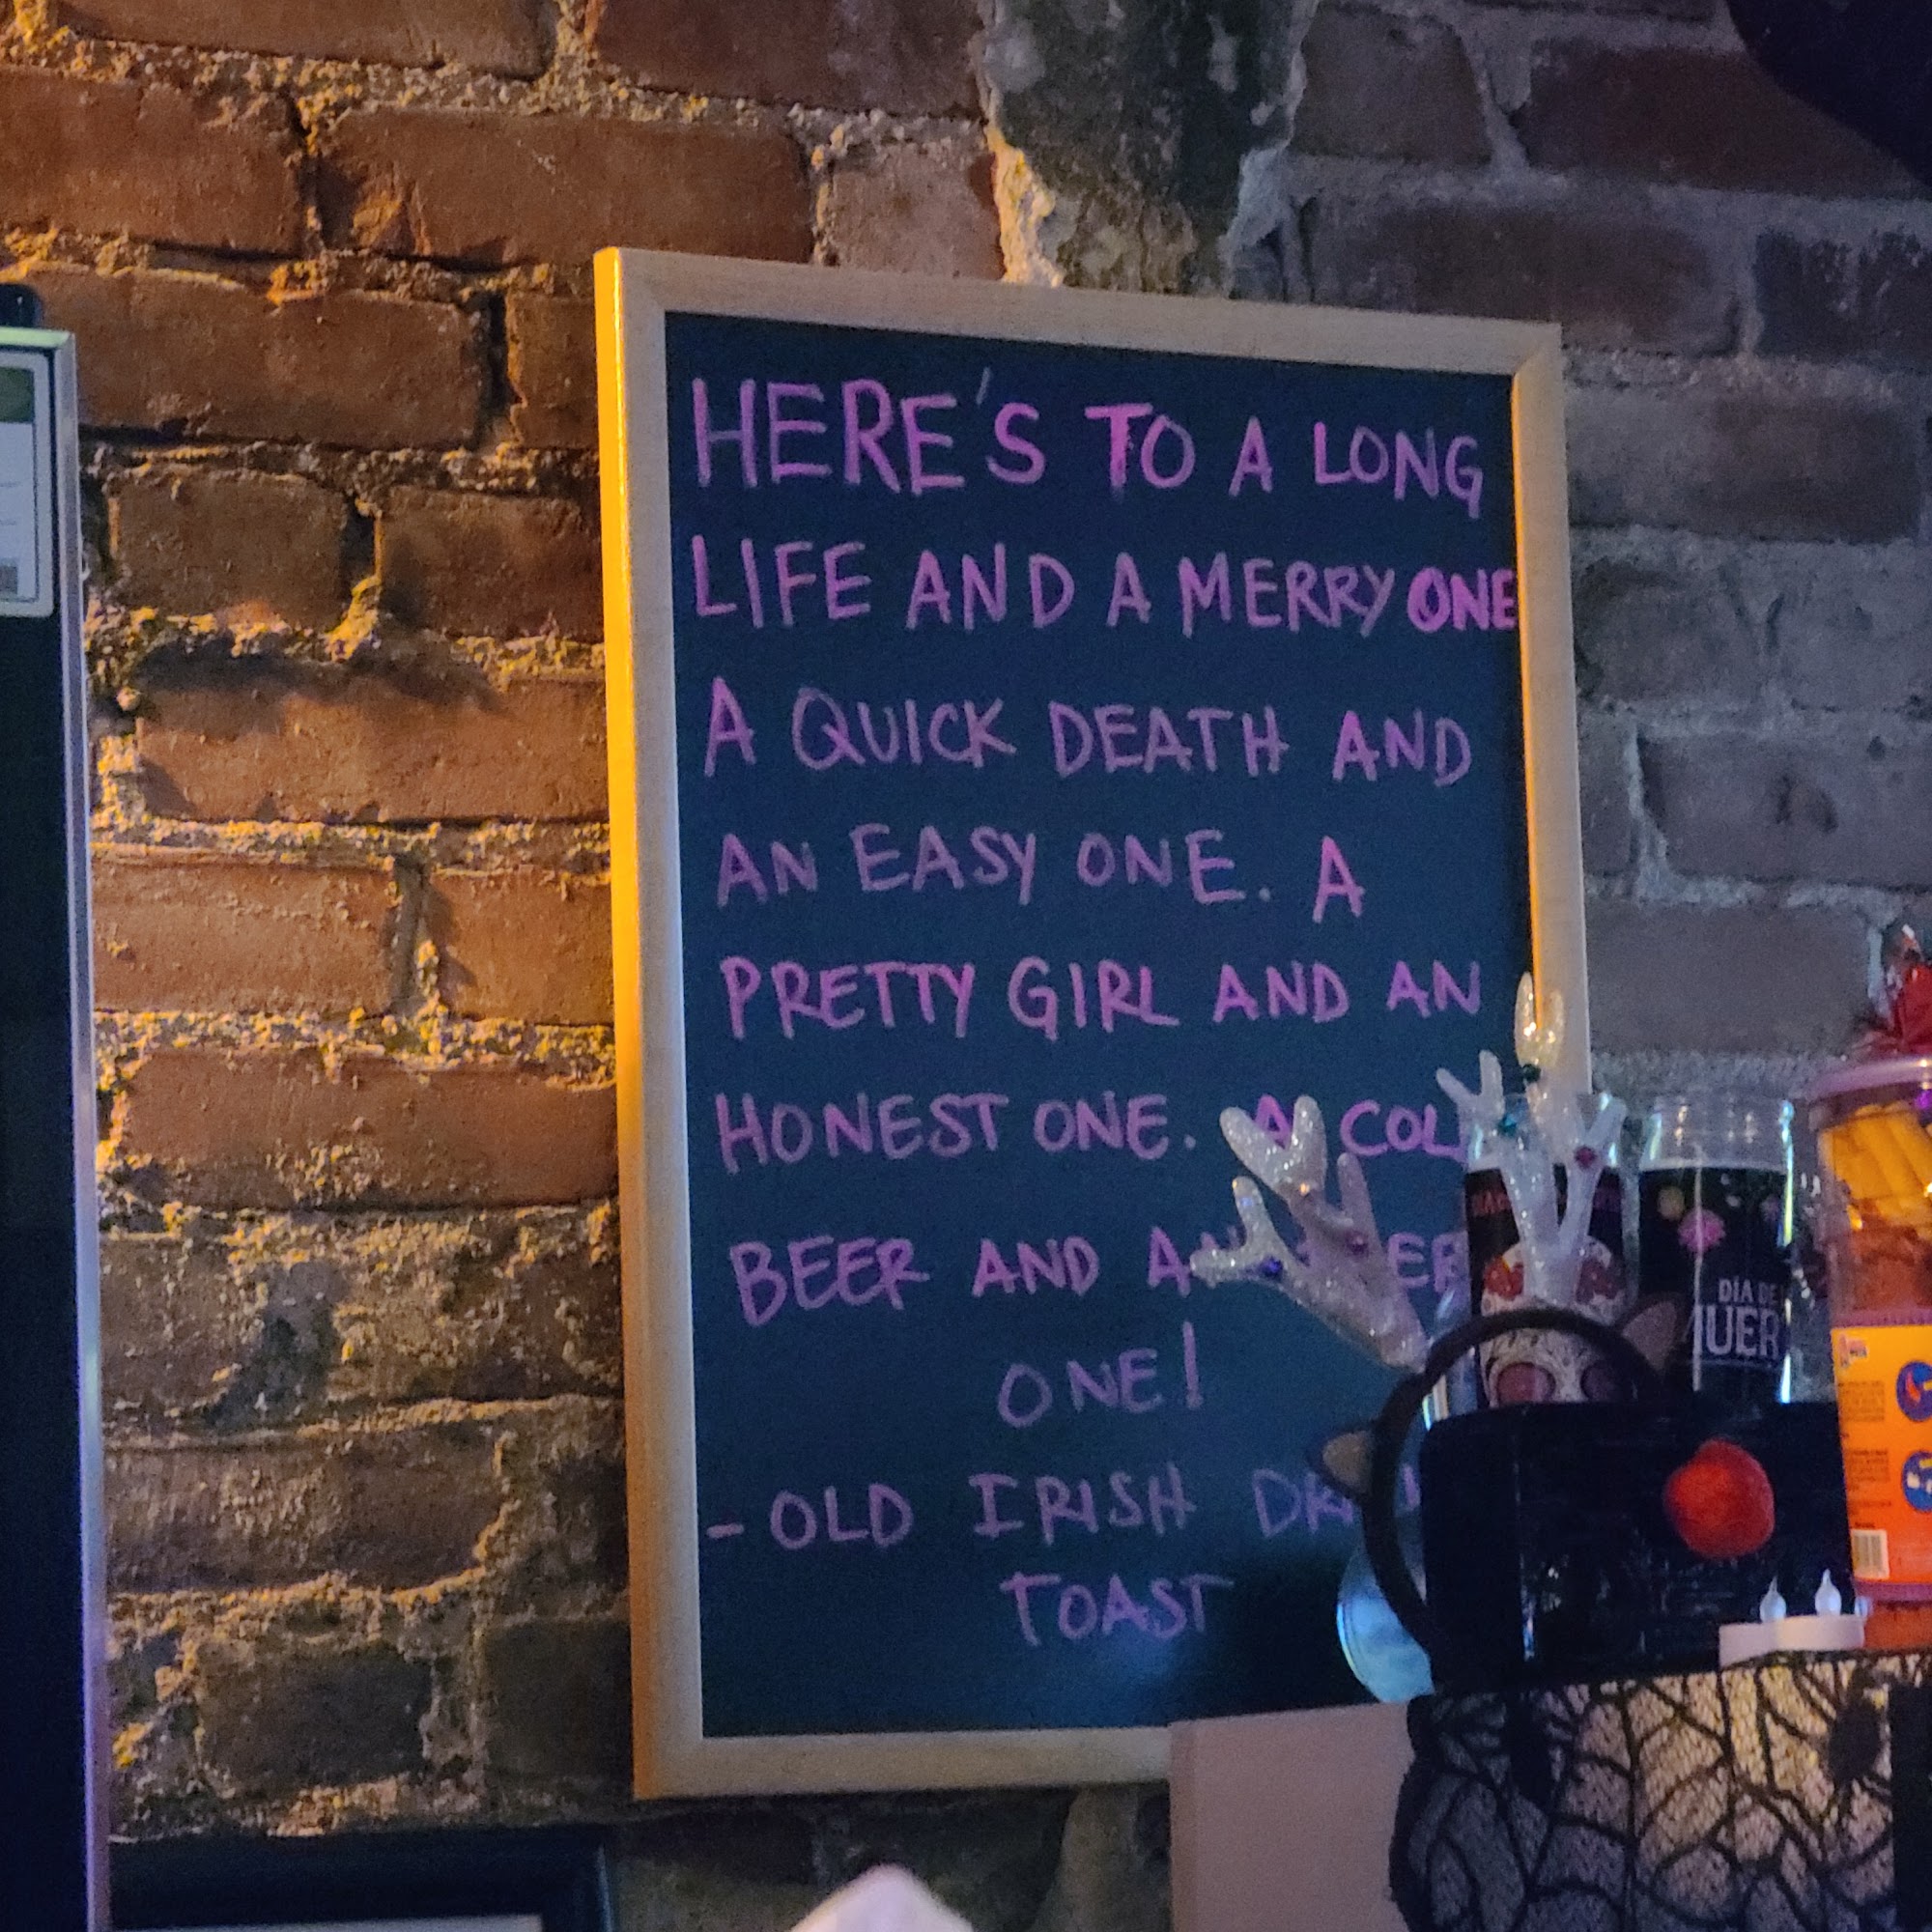 HERE'S TO A LONG
LIFE AND A MERRY ONE
A QUICK DEATH AND
AN EASY ONE. A
PRETTY GIRL AND AN
HONEST ONE. A COL
BEER AND
ONE!
- OLD IRISH
TOAST
DÍA DE